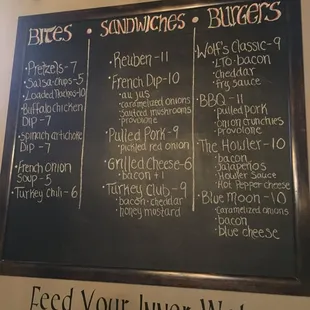 Bites • Sandwiches • Burgers
• Pretzels-7
• Salsa+Chips-5
• Loaded Nachos-10
• Buffalo chicken
Dip -7
• Spinach artichoke
Dip -7
• French Onion
Soup -5
• Turkey Chili -6
• Reuben -11
• French Dip -10
• au jus
• caramelized onions
• sauteed mushrooms
• provolone
• Pulled Pork -9
• pickled red onion
• Grilled Cheese -6
• bacon +1
• Turkey Club -9
• bacon • cheddar
• honey mustard
Wolf's Classic -9
• LTO • bacon
• cheddar
• fry sauce
• BBQ -11
• pulled pork
• onion crunchies
• provolone
• The Howler -10
• bacon
• jalapeños
• Howler Sauce
• Hot Pepper cheese
• Blue Moon -10
• caramelized onions
• bacon
• blue cheese
Feed Your Inner